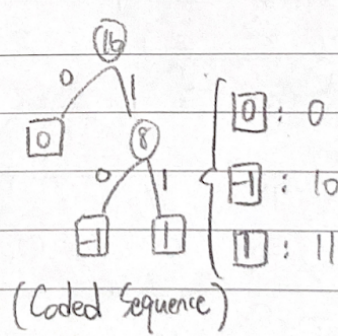 16
0 1
0 8
0 1
-1 1
0 : 0
-1 : 10
1 : 11
(Coded Sequence)